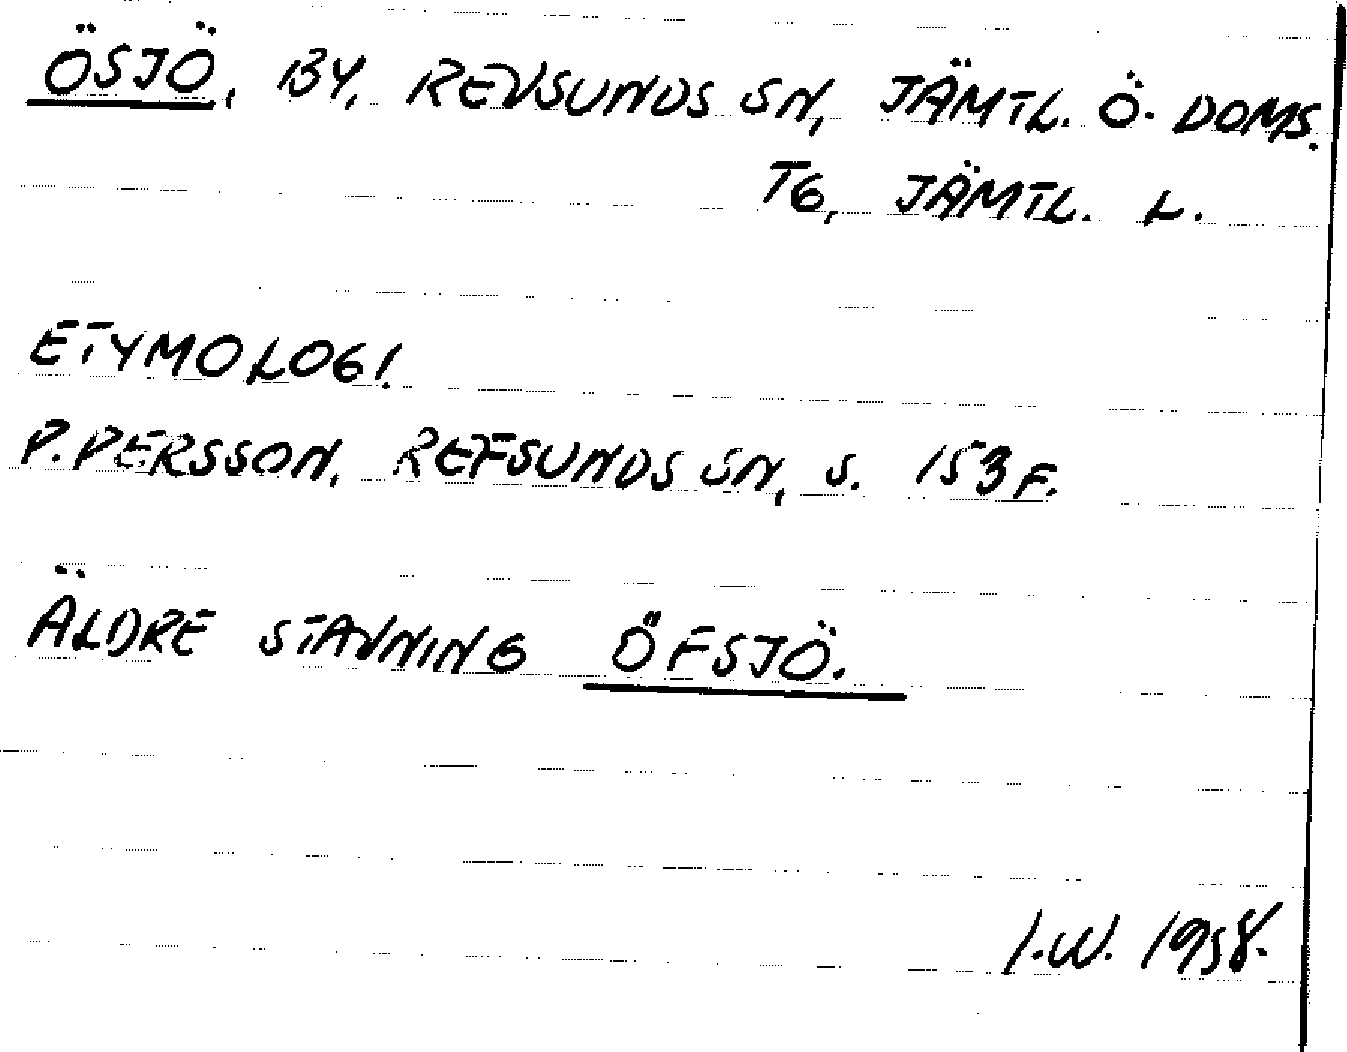 ÖSJÖ, BY, REVSUNDS SN, JÄMTL. Ö. DOMS.
TG, JÄMTL. L.
ETYMOLOGI.
P. PERSSON, REFSUNDS SN, S. 153 F.
ÄLDRE STAVNING ÖFSJÖ.
I.W. 1958.